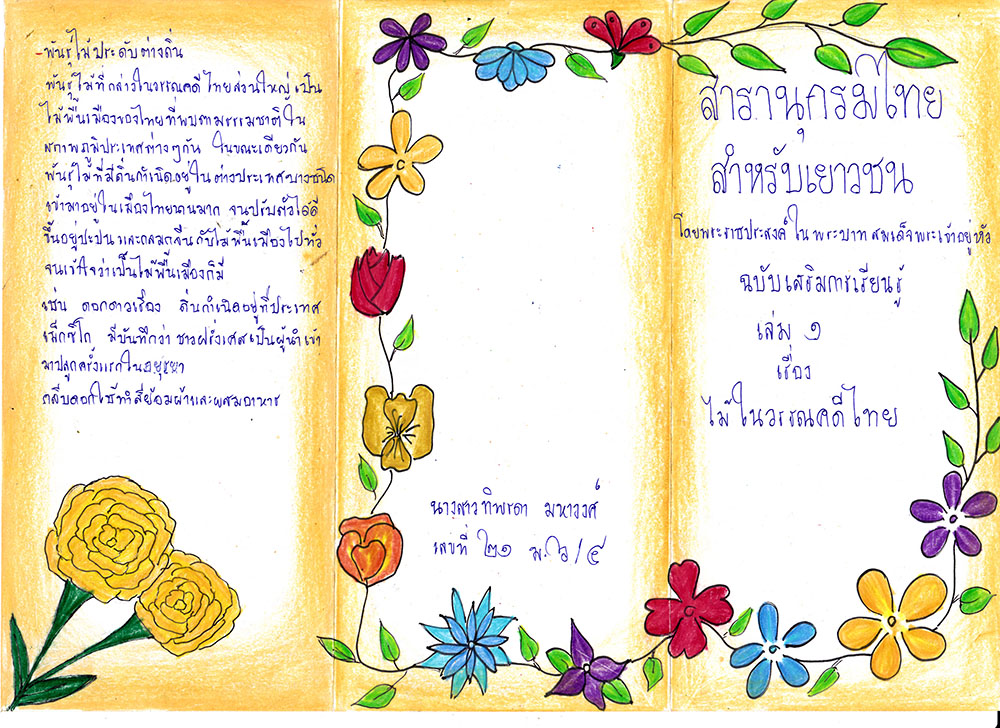 -พันธุ์ไม้ประดับต่างถิ่น
พันธุ์ไม้ที่กล่าวในวรรณคดีไทยส่วนใหญ่ เป็น
ไม้พื้นเมืองของไทยที่พบตามธรรมชาติใน
สภาพภูมิประเทศต่างๆกัน ในขณะเดียวกัน
พันธุ์ไม้ที่มีถิ่นกำเนิดอยู่ในต่างประเทศบางชนิด
เข้ามาอยู่ในเมืองไทยนานมาก จนปรับตัวได้ดี
ขึ้นอยู่ปะปน และกลมกลืนกับไม้พื้นเมืองไปทั่ว
จนเข้าใจว่าเป็นไม้พื้นเมืองก็มี
เช่น ดอกดาวเรือง ถิ่นกำเนิดอยู่ที่ประเทศ
เม็กซิโก มีบันทึกว่า ชาวฝรั่งเศสเป็นผู้นำเข้า
มาปลูกครั้งแรกในอยุธยา
กลีบดอกใช้ทำสีย้อมผ้าและผสมอาหาร
นางสาวทิพรดา มหาวงศ์
เลขที่ ๒๑ ม.๖/๕
สารานุกรมไทย
สำหรับเยาวชน
โดยพระราชประสงค์ในพระบาทสมเด็จพระเจ้าอยู่หัว
ฉบับเสริมการเรียนรู้
เล่ม ๑
เรื่อง
ไม้ในวรรณคดีไทย